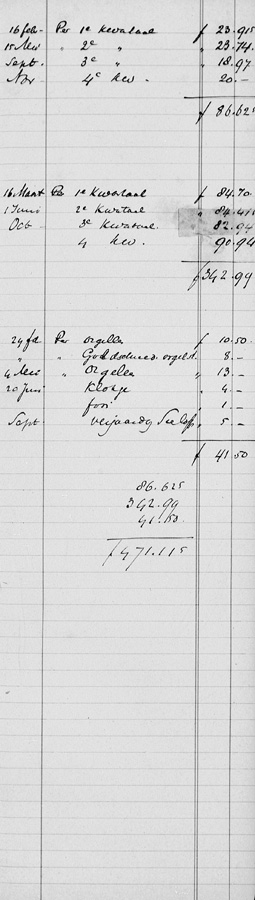 16 feb. Per 1e Kwartaal f 23.915
15 Mei " 2e " " 23.74
Sept. " 3e " " 18.97
Nov. 4e kw. " 20.—
f 86.625
16 Maart Per 1e Kwartaal f 84.70
1 Juni 2e Kwartaal " 84.41
Oct 3e Kwartaal " 82.94
4 kw. 90.94
f 342.99
24 feb Per orgellen f 10.50
" " orgelst. 8.—
4 Mei " Orgellen " 13.—
20 Juni Klokje " 4.—
" 1.—
Sept. " 5.—
f 41.50
86.625
342.99
41.50
f 471.115